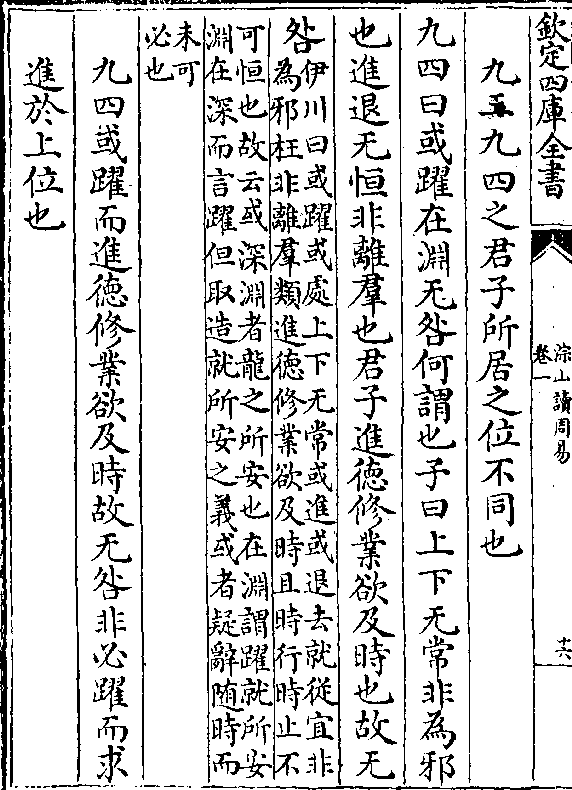 欽定四庫全書
淙山讀周易
卷一
十六
九五九四之君子所居之位不同也
九四曰或躍在淵无咎何謂也子曰上下无常非為邪
也進退无恒非離羣也君子進徳修業欲及時也故无
咎
伊川曰或躍或處上下无常或進或退去就從宜非
為邪枉非離羣類進徳修業欲及時且時行時止不
可恒也故云或深淵者龍之所安也在淵謂躍就所安
淵在深而言躍但取造就所安之義或者疑辭随時而
未可
必也
九四或躍而進徳修業欲及時故无咎非必躍而求
進於上位也